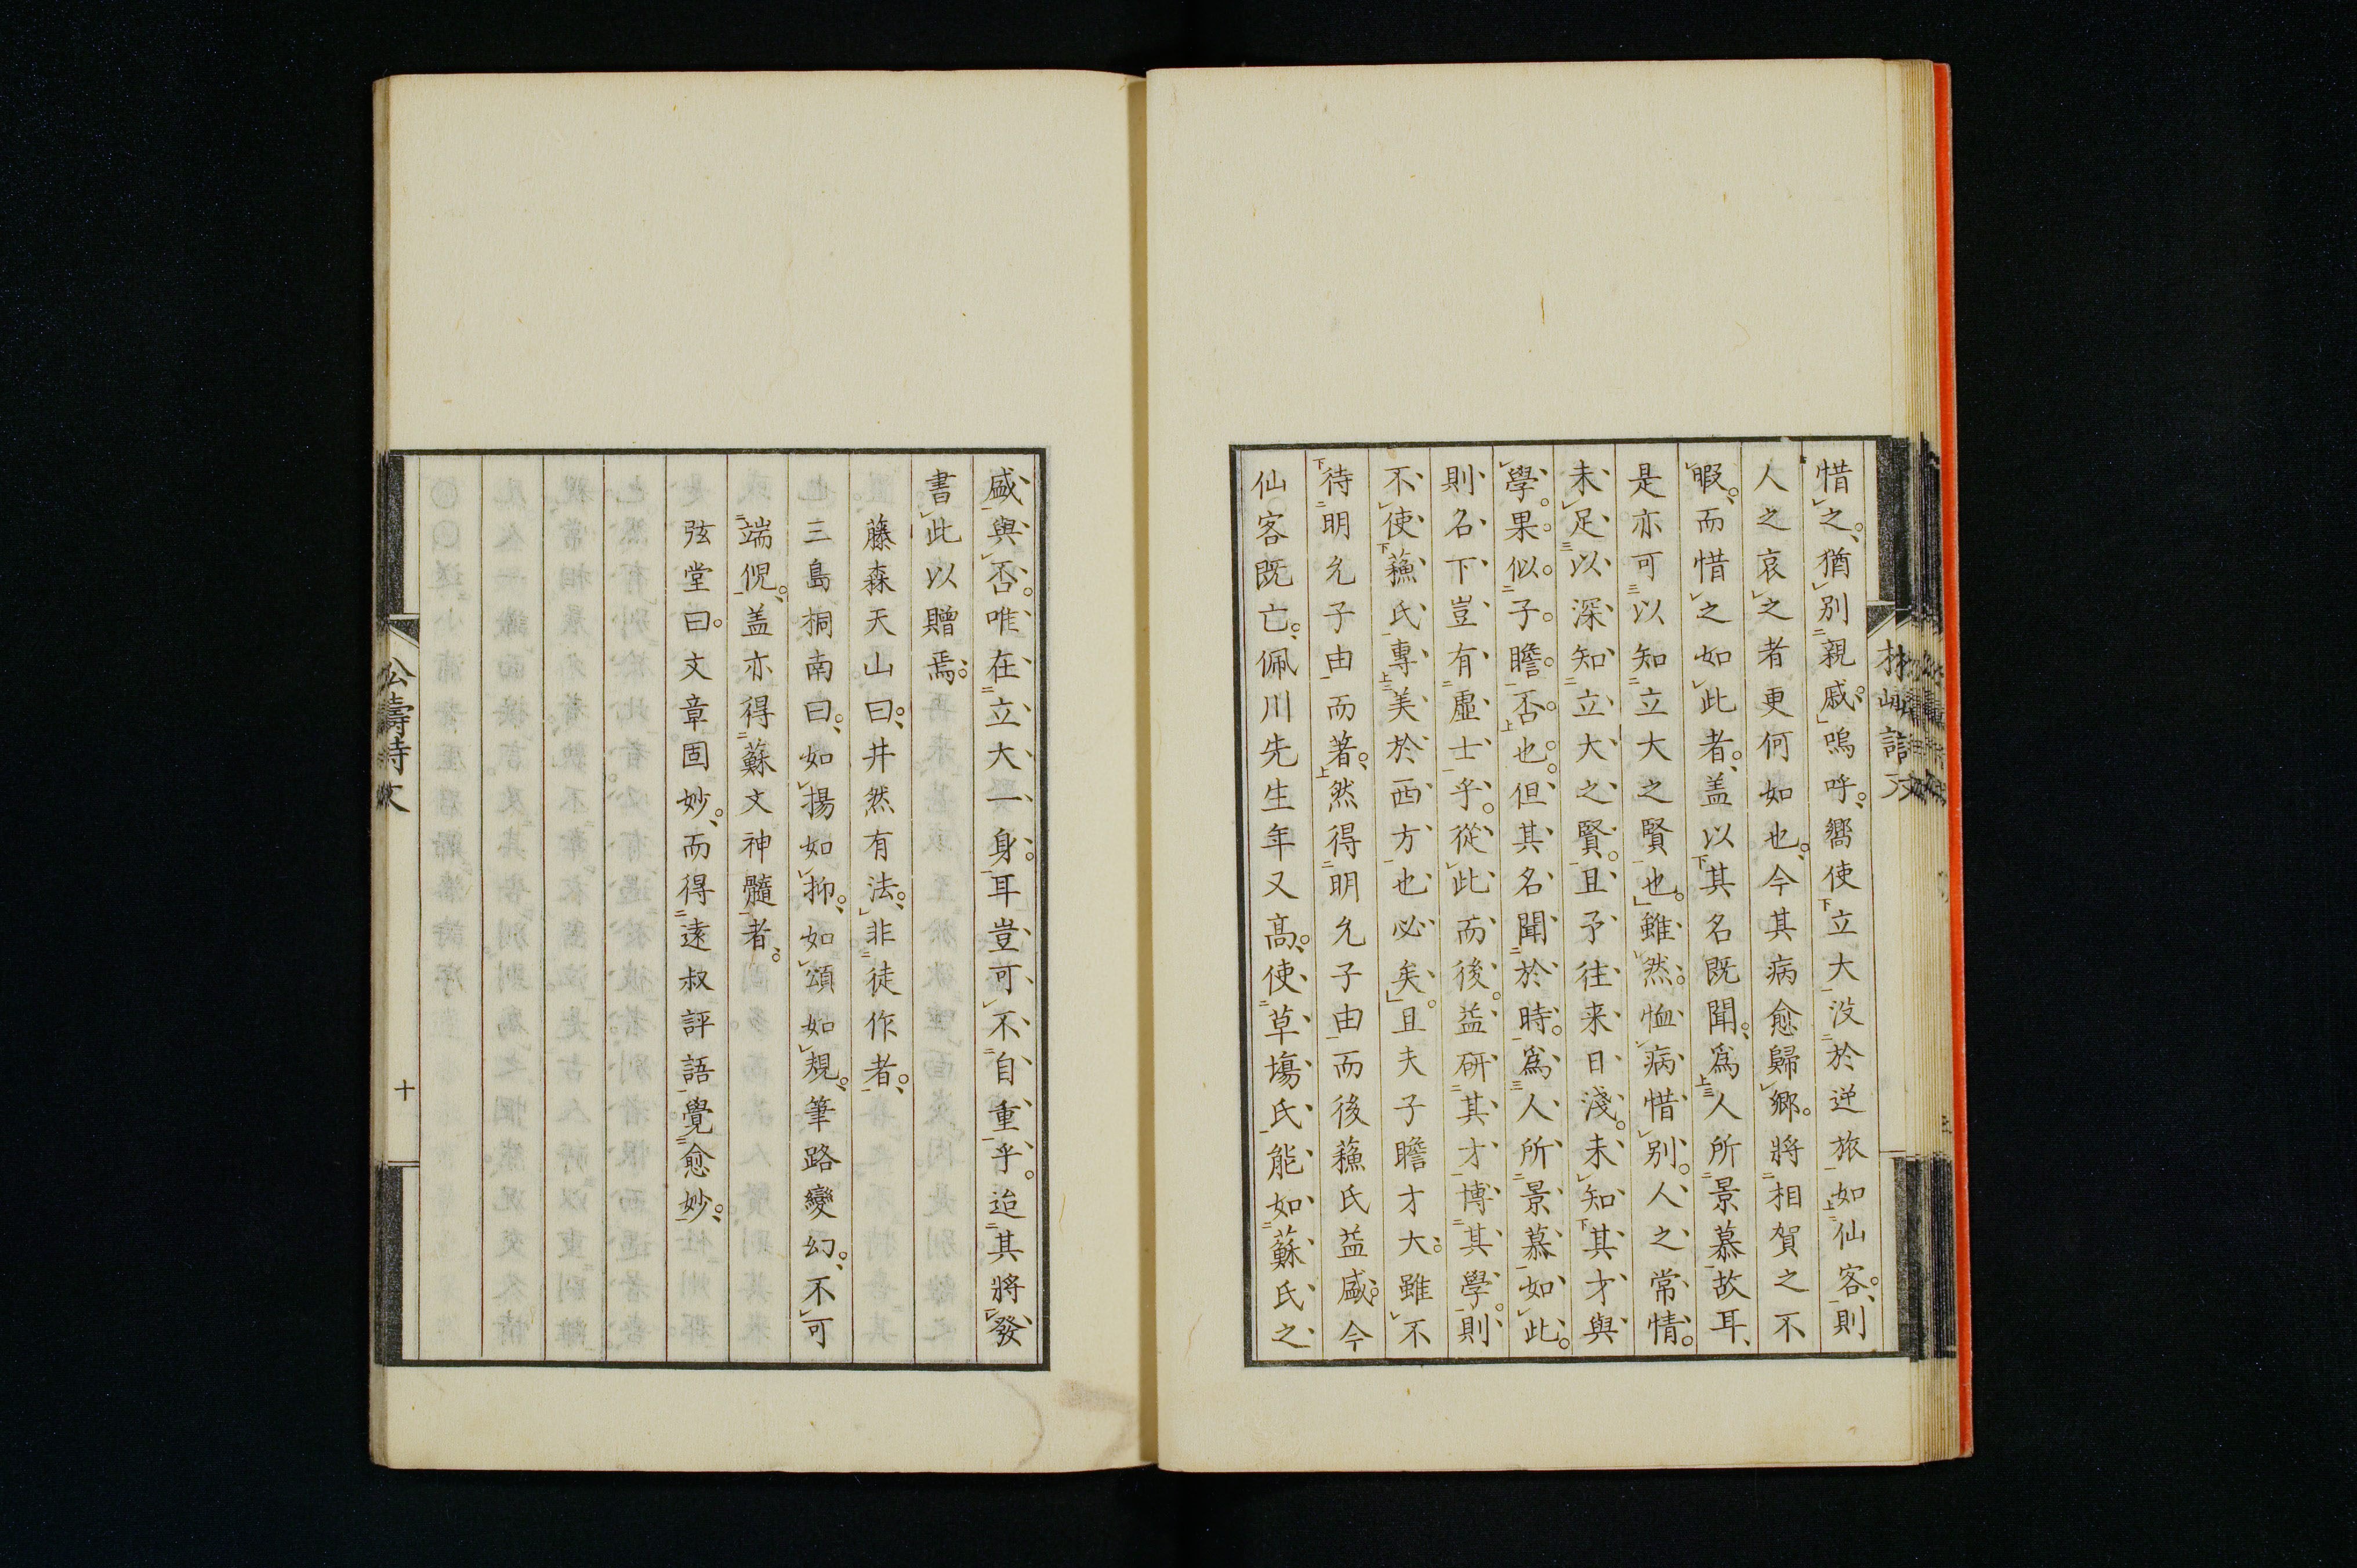 惜之猶別親戚嗚呼嚮使立大没於逆旅如仙客則
人之哀之者更何如也今其病愈歸郷將相賀之不
暇而惜之如此者盖以其名既聞爲人所景慕故耳
是亦可以知立大之賢也雖然恤病惜別人之常情
未足以深知立大之賢且予往来日淺未知其才與
學果似子瞻否也但其名聞於時爲人所景慕如此
則名下豈有虛士乎從此而後益研其才博其學則
不使蘓氏專美於西方也必矣且夫子瞻才大雖不
待明允子由而著然得明允子由而後蘓氏益盛今
仙客既亡佩川先生年又高使草塲氏能如蘇氏之
盛與否唯在立大一身耳豈可不自重乎迨其將發
書此以贈焉
藤森天山曰井然有法非徒作者
三島桐南曰如揚如抑如頌如規筆路變幻不可
端倪盖亦得蘇文神髓者
弦堂曰文章固妙而得遠叔評語覺愈妙
十